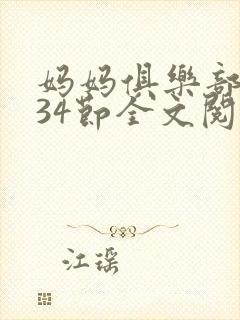 妈妈俱樂部
34節全文閱
江瑤